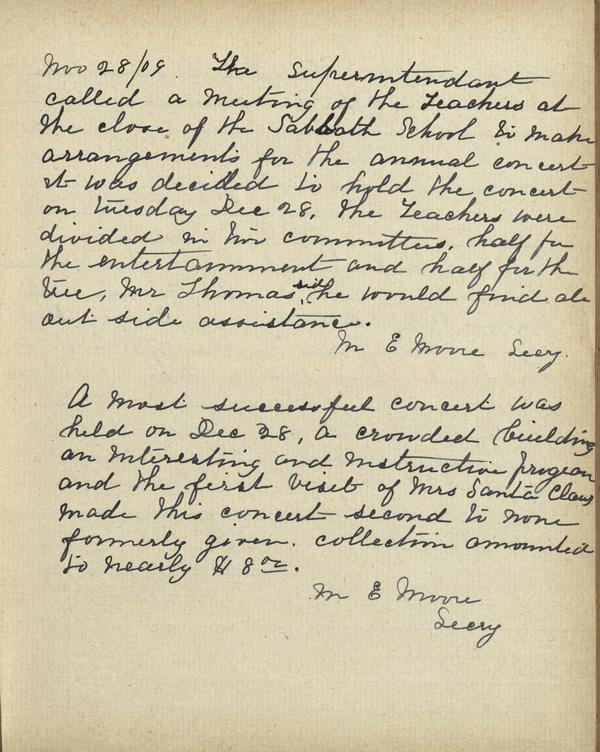 Nov 28/09. The Superintendant
called a meeting of the Teachers at
the close of the Sabbath School to make
arrangements for the annual concert
it was decided to hold the concert
on Tuesday Dec 28, the Teachers were
divided in two committees, half for
the entertainment and half for the
tree, Mr Thomas said he would find all
out side assistance.
M E Moore Secy.
A most successful concert was
held on Dec 28, a crowded building
an interesting and instructive program
and the first visit of Mrs Santa Claus
made this concert second to none
formerly given. collection amounted
to nearly $ 8 00.
M E Moore
Secry